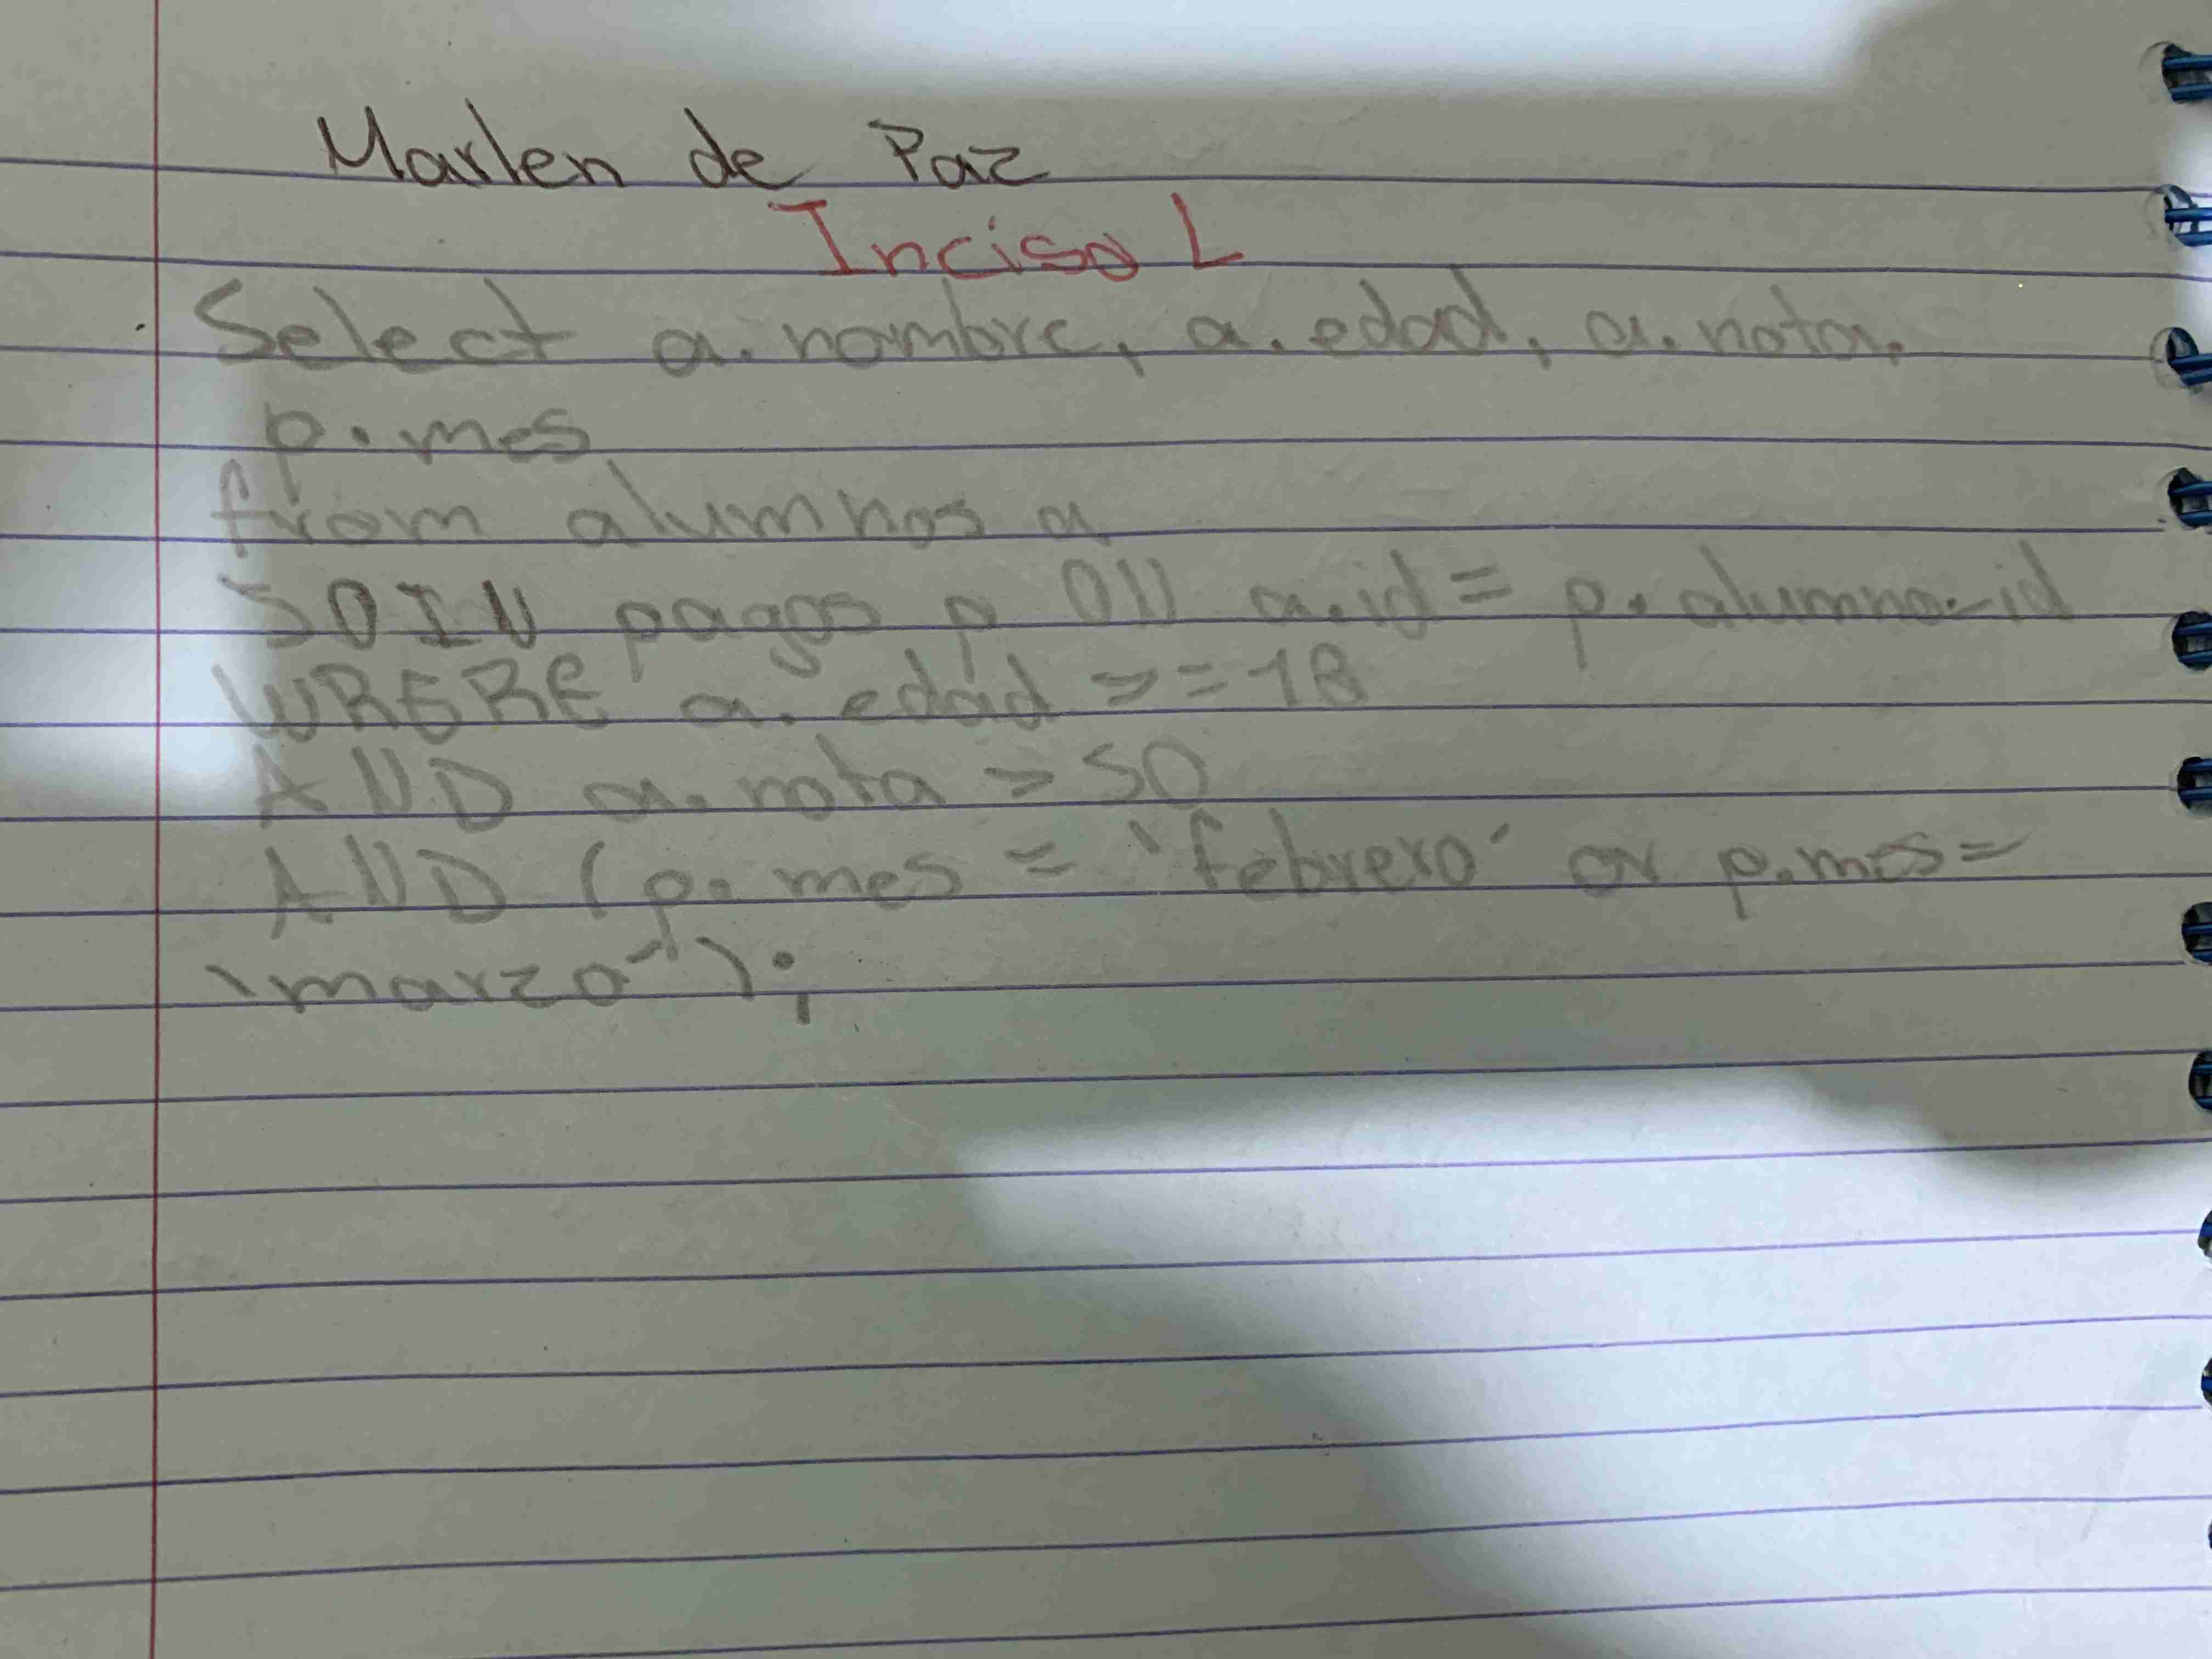 Marlen de Paz
Inciso L
Select a. nombre, a. edad, a. nota.
p. mes
from alumnos a
JOIN pagos p ON a.id = p. alumno-id
WHERE a. edad >= 18
AND a. nota > 50
AND (p. mes = 'febrero' or p.mes=
'marzo');